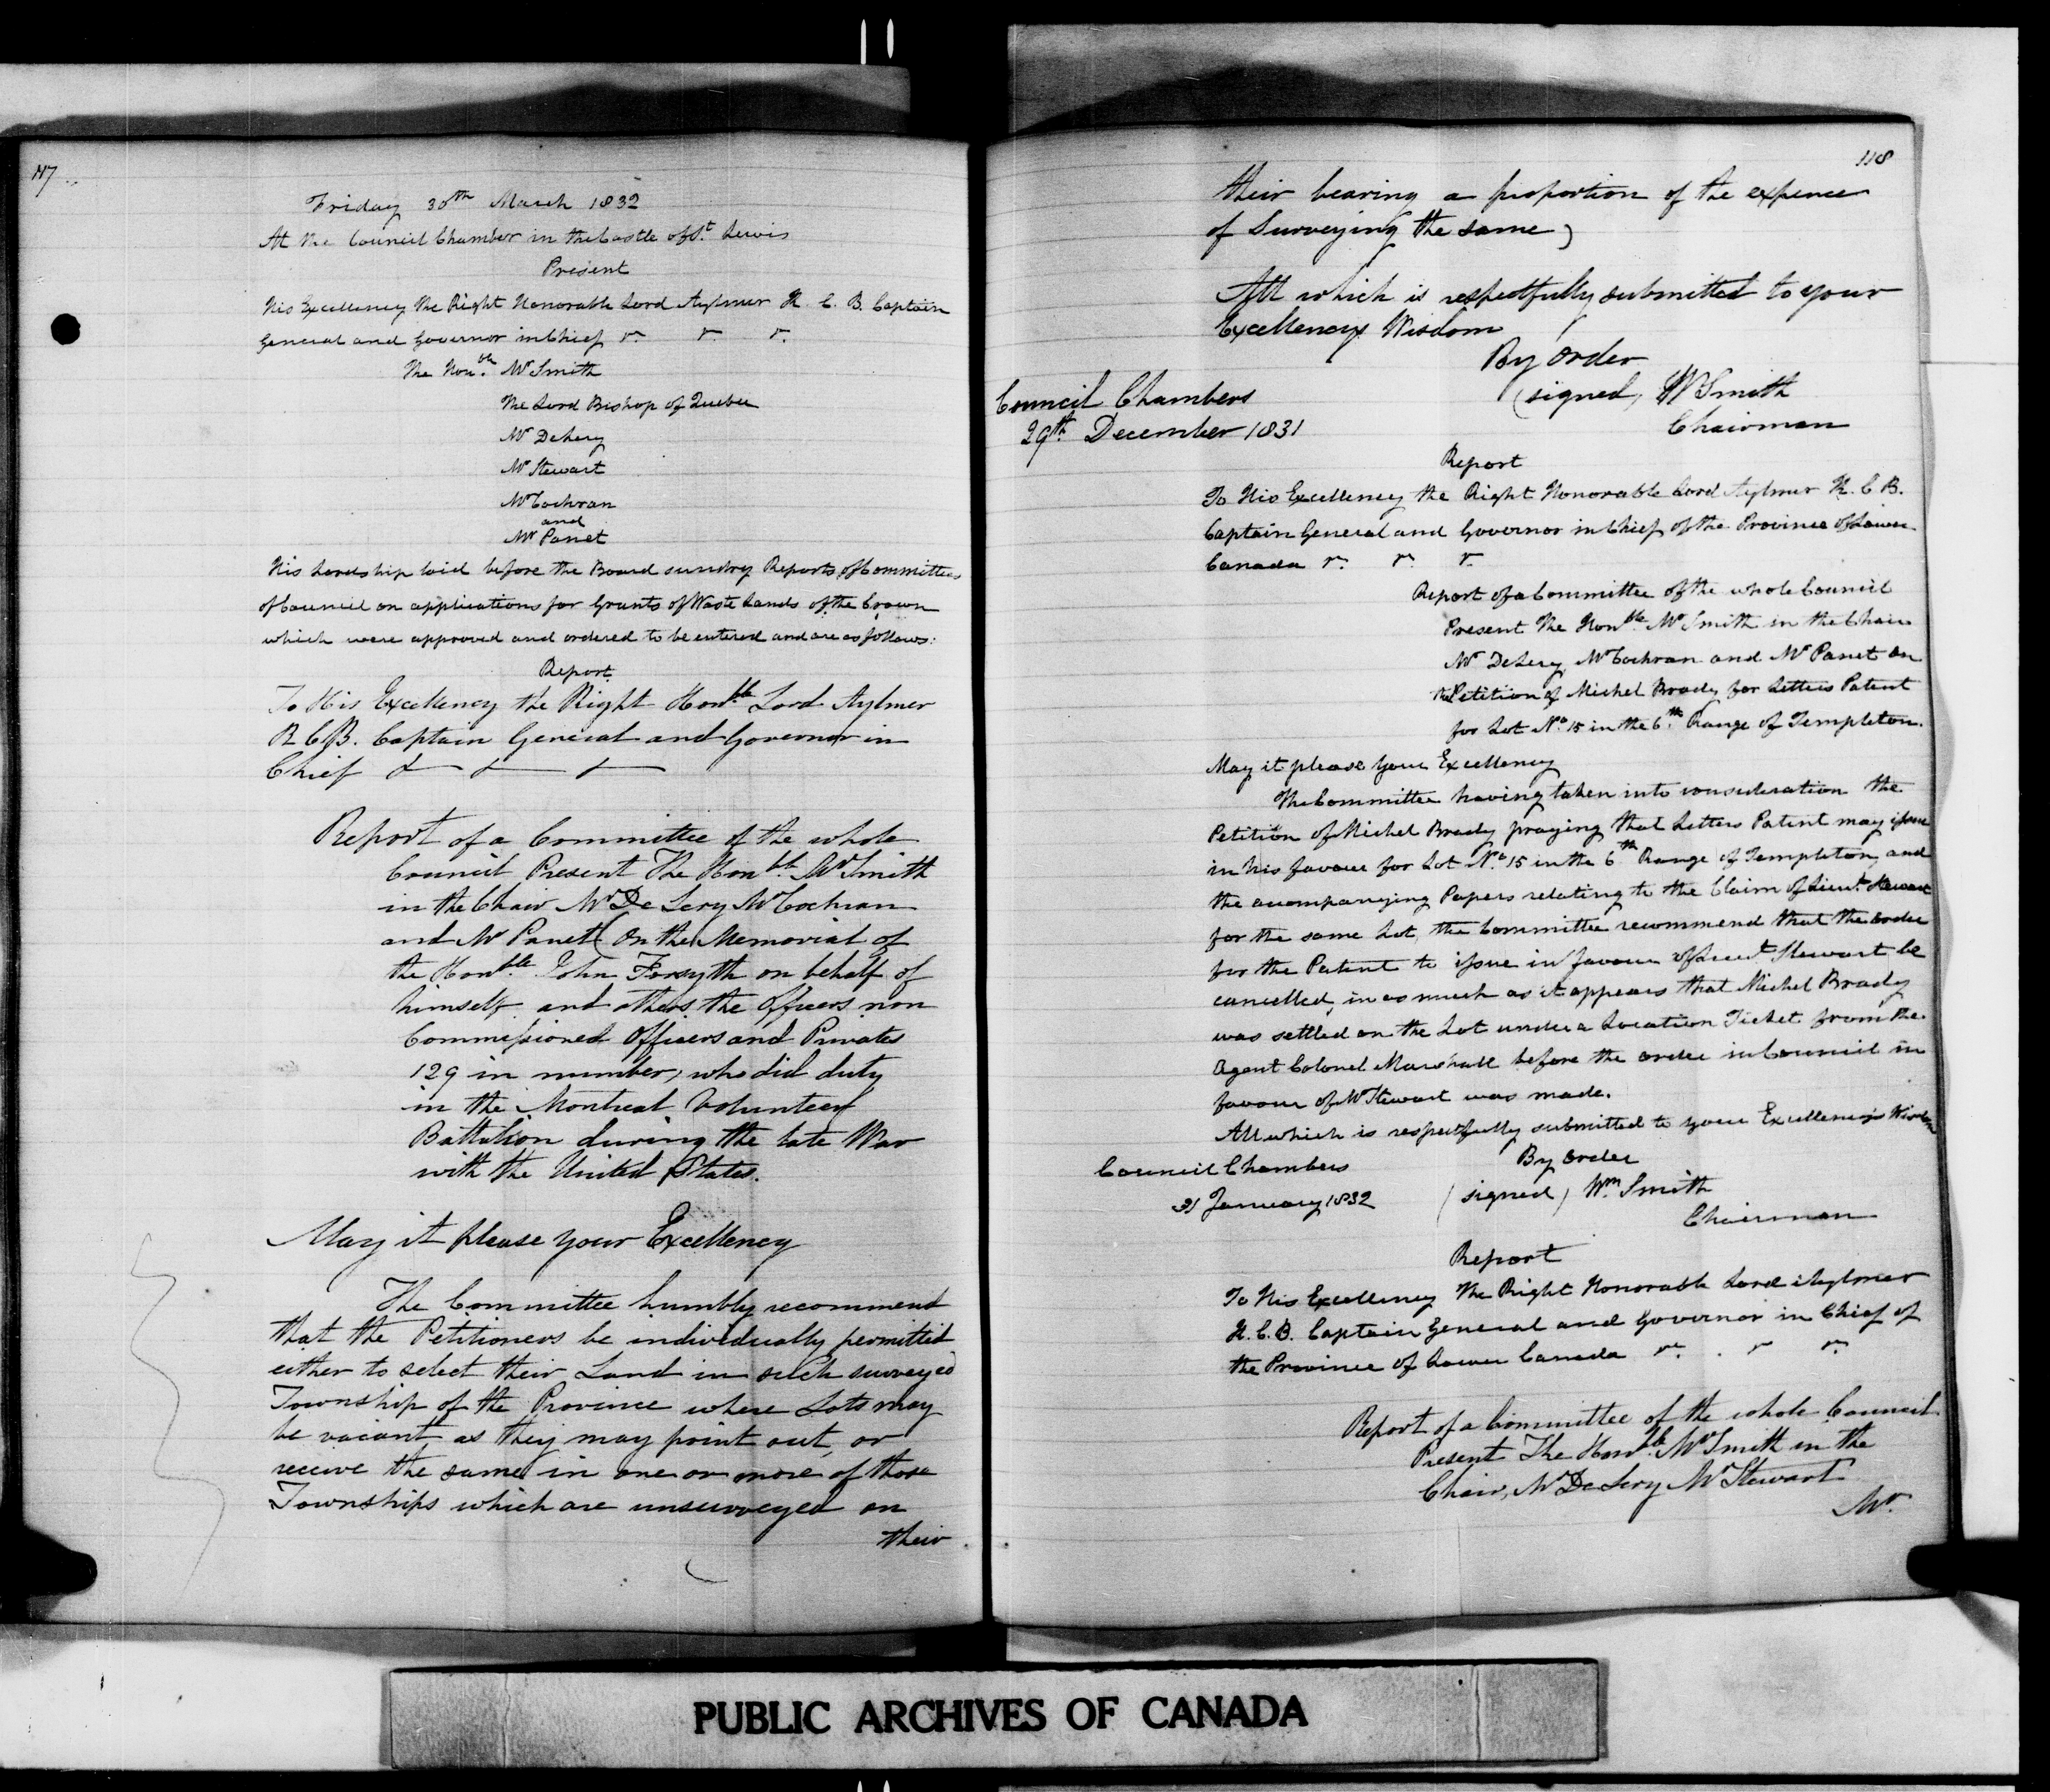 117
Friday 30th March 1832
At the Council Chamber in the Castle of St. Lewis
Present
His Excellency the Right Honorable Lord Aylmer K. C. B. Captain
General and Governor in Chief &c. &c. &c.
The Honble. Mr Smith
The Lord Bishop of Quebec
Mr DeLery
Mr Stewart
Mr Cochran
and
Mr Panet
His Lordship laid before the Board sundry Reports of Committees
of Council on applications for Grants of Waste Lands of the Crown
which were approved and ordered to be entered and are as follows:
Report
To His Excellency the Right Honble Lord Aylmer
K C B. Captain General and Governor in
Chief & & &
Report of a Committee of the whole
Council Present The Honble. Mr Smith
in the Chair Mr De Lery Mr Cochran
and Mr Panet On the Memorial of
the Honble. John Forsyth on behalf of
himself and others the Officers non
Commissioned Officers and Privates
129 in number, who did duty
in the Montreal Volunteer
Battalion during the late War
with the United States.
May it please your Excellency
The Committee humbly recommend
that the Petitioners be individually permitted
either to select their Land in such surveyed
Township of the Province where Lots may
be vacant as they may point out, or
receive the same in one or more of those
Townships which are unsurveyed on
their
118
their bearing a proportion of the expence
of Surveying the same)
All which is respectfully submitted to your
Excellencys Wisdom
By Order
(signed, W Smith
Chairman
Council Chambers
29th December 1831
Report
To His Excellency the Right Honorable Lord Aylmer K. C B.
Captain General and Governor in Chief of the Province of Lower
Canada &c. &c. &c.
Report of a Committee of the whole Council
Present The Honble. Mr Smith in the Chair
Mr DeLery Mr Cochran and Mr Panet On
the Petition of Michel Brady for Letters Patent
for Lot No 15 in the 6.th Range of Templeton.
May it please Your Excellency
The Committee having taken into consideration the
Petition of Michel Brady praying that Letters Patent may issue
in his favour for Lot No 15 in the 6th Range of Templeton, and
the accompanying Papers relating to the Claim of Lieut. Stewart
for the same Lot, the Committee recommend that the order
for the Patent to issue in favour of Lieut Stewart be
cancelled, in as much as it appears that Michel Brady
was settled on the Lot under a Location Ticket from the
Agent Colonel Marshall before the order in Council in
favour of Mr Stewart was made.
All which is respectfully submitted to your Excellency's Wisdom
By order
Council Chambers
31 January 1832
(signed) Wm. Smith
Chairman
Report
To His Excellency The Right Honorable Lord Aylmer
K. C. B. Captain General and Governor in Chief of
the Province of Lower Canada &c. &c. &c.
Report of a Committee of the whole Council
Present The Honble Mr Smith in the
Chair, Mr DeLery Mr Stewart
Mr.
PUBLIC ARCHIVES OF CANADA